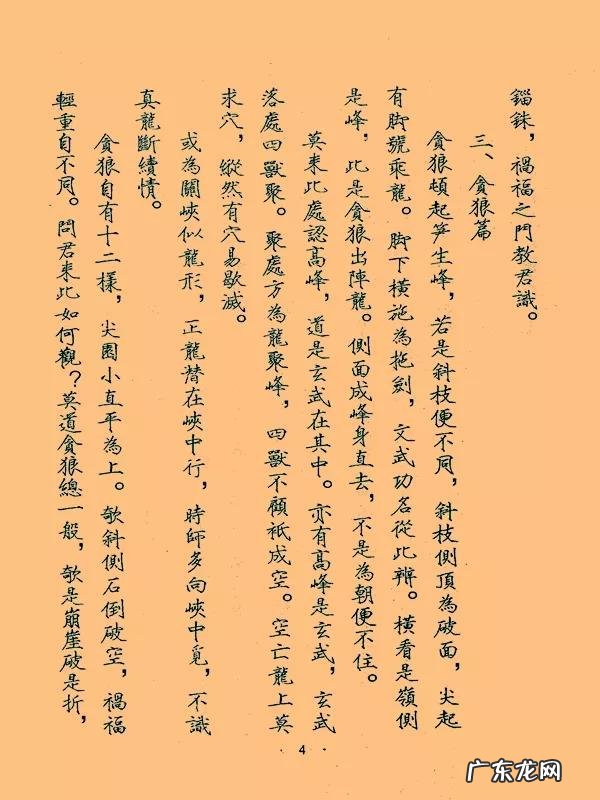 錙銖，禍福之門教君識。
三、貪狼篇
貪狼頓起笋生峰，若是斜枝便不同，斜枝側頂為破面，尖起
有脚號乘龍。脚下橫施為拖劍，文武功名從此辨。橫看是嶺側
是峰，此是貪狼出陣龍。側面成峰身直去，不是為朝便不住。
莫来此處認高峰，道是玄武在其中。亦有高峰是玄武，玄武
落處四獸聚。聚處方為龍聚峰，四獸不顧衹成空。空亡龍上莫
求穴，縱然有穴易歇滅。
或為關峽似龍形，正龍潛在峽中行，時師多向峽中覓，不識
真龍斷續情。
貪狼自有十二樣，尖圓小直平為上。欹斜側石倒破空，禍福
輕重自不同。問君来此如何觀？莫道貪狼總一般，欹是崩崖破是折，
· 4 ·
广东龙网